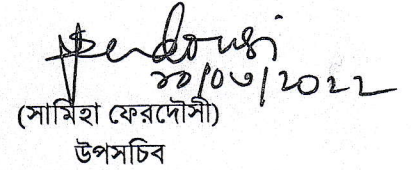 ferdousi
২০/০৩/2022
(সামিহা ফেরদৌসী)
উপসচিব